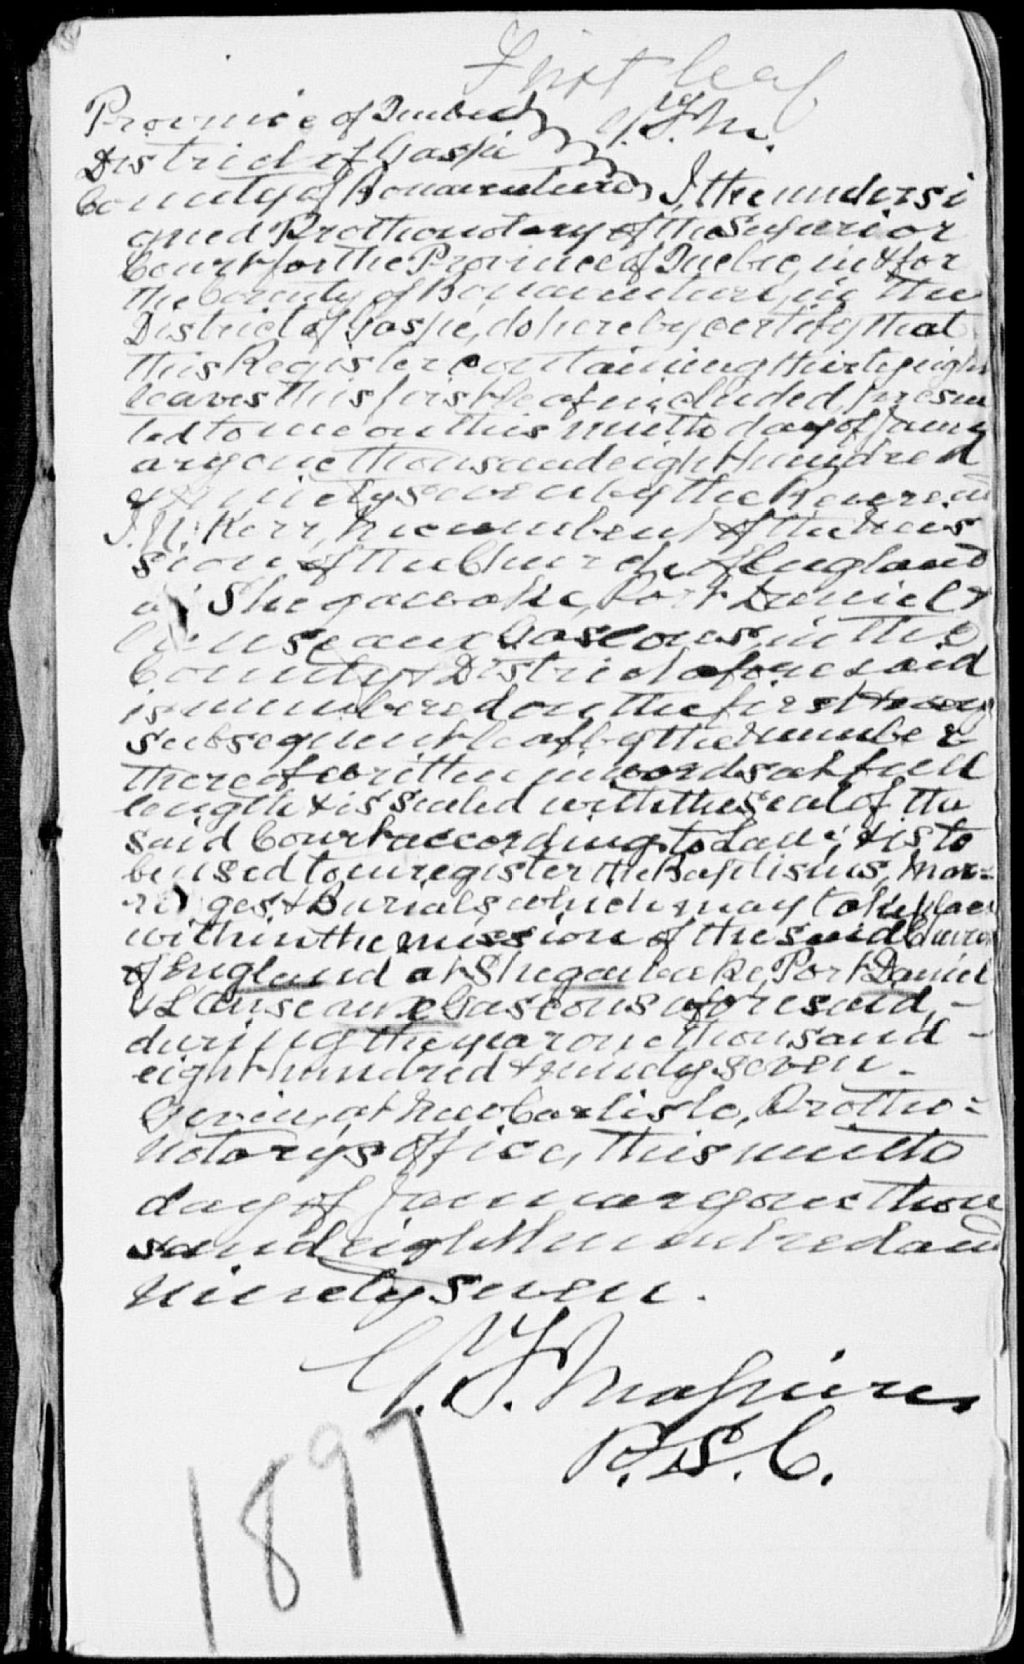 First leaf
Province of Quebec
J.F.M.
District of Gaspé
County of Bonaventure I, the undersi
gned Prothonotary of the Superior
Court for the Province of Quebec, in & for
the County of Bonaventure, in the
District of Gaspé, do hereby certify that
this Register containing thirty eight
leaves this first leaf included, presen
ted to me on this ninth day of Janu
ary one thousand eight hundred
& ninety seven by the Reverend
Kerr, Incumbent of the Mis
sion of the Church of England
at Shegawake, Port Daniel &
L'anse aux Gascons, in the
County & District aforesaid
is numbered on the first & every
subsequent leaf by the number
thereof written in words at full
length & is sealed with the seal of the
said Court according to Law; & is to
be used to enregister the Baptisms, Mar=
riages & Burials which may take place
within the mission of the said Church
of England at Shegawake, Port Daniel
& L'anse aux Gascons aforesaid, -
during the year one thousand -
eight hundred & ninety seven -
Given, at New Carlisle, Protho=
notary's Office, this ninth
day of January one thou
sand eight hundred and
ninety seven.
P.S.C.
1897